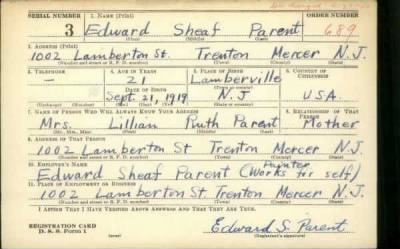 SERIAL NUMBER 1. NAME (Print) ORDER NUMBER
3 Edward Sheaf Parent 689
(First) (Middle) (Last)
2. ADDRESS (Print)
1002 Lamberton St. Trenton Mercer N.J.
(Number and street or R. F. D. number) (Town) (County) (State)
3. TELEPHONE 4. AGE IN YEARS 5. PLACE OF BIRTH 6. COUNTRY OF CITIZENSHIP
— 21 Lamberville
DATE OF BIRTH (Town or county)
Sept. 21, 1919 N.J U.S.A.
(Exchange) (Number) (Mo.) (Day) (Yr.) (State or country)
7. NAME OF PERSON WHO WILL ALWAYS KNOW YOUR ADDRESS 8. RELATIONSHIP OF THAT PERSON
Mrs. Lillian Ruth Parent Mother
(Mr., Mrs., Miss) (First) (Middle) (Last)
9. ADDRESS OF THAT PERSON
1002 Lamberton St. Trenton Mercer N.J.
(Number and street or R. F. D. number) (Town) (County) (State)
10. EMPLOYER'S NAME Painter
Edward Sheaf Parent (Works for self)
11. PLACE OF EMPLOYMENT OR BUSINESS
1002 Lamberton St. Trenton Mercer N.J.
(Number and street or R. F. D. number) (Town) (County) (State)
I AFFIRM THAT I HAVE VERIFIED ABOVE ANSWERS AND THAT THEY ARE TRUE.
REGISTRATION CARD
D. S. S. Form 1 Edward S. Parent
(Registrant's signature)